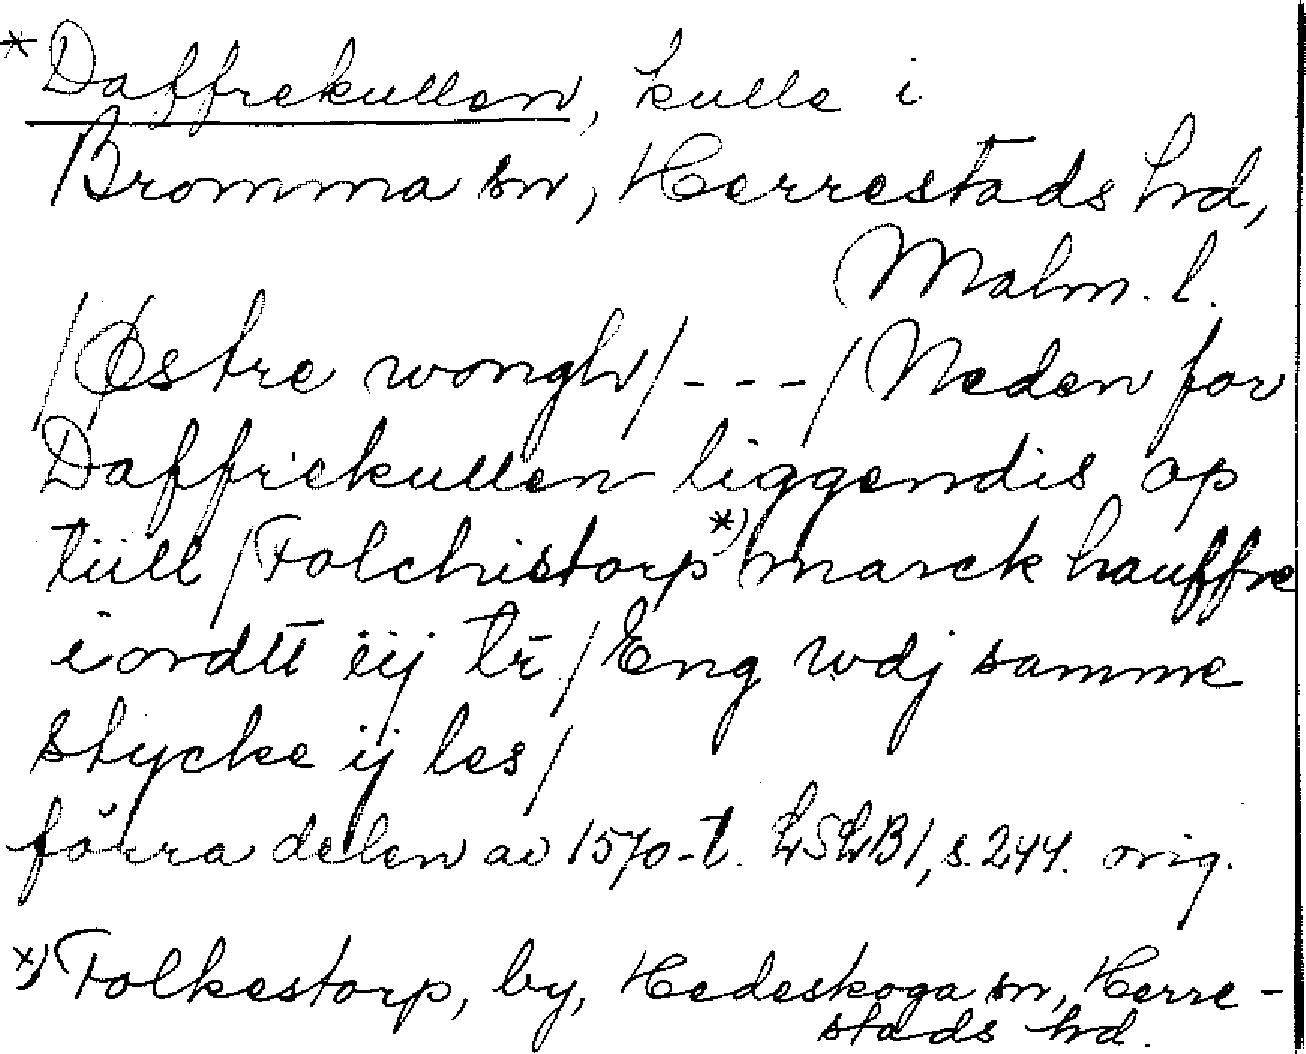 * Daffrekullen, kulle i
Bromma sn, Herrestads hd,
Malm. l.
/Østre wongh/ - - - / Neden for
Daffrekullen liggendis op
tiill /Folchistorp *) marck hauffre
iordtt iij tr̄ / Eng wdj samme
stycke ij les /
förra delen av 1570-t. LSLB 1, s. 244. orig.
*) Folkestorp, by, Hedeskoga sn, Herre-
stads hd.